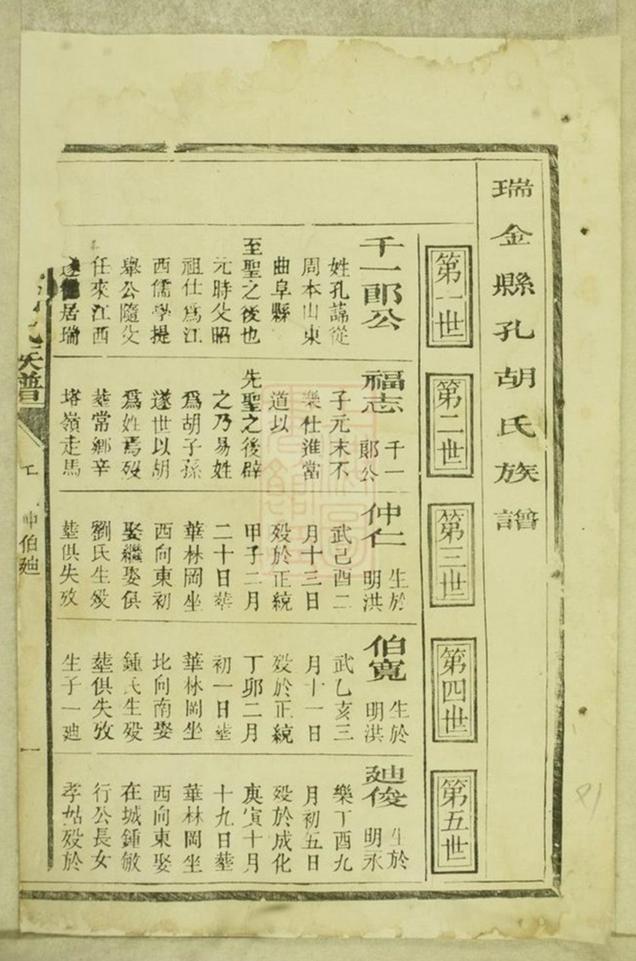 瑞金縣孔胡氏族譜
第一世
千一郎公
姓孔諱從
周本山東
曲阜縣
至聖之後也
元時父昭
祖仕爲江
西儒學提
舉公隨父
任來江西
居瑞
第二世
福志
千一
郎公
子元末不
樂仕進當
道以
先聖之後辟
之乃易姓
爲胡子孫
遂世以胡
爲姓焉歿
塟常鄉辛
塔嶺走馬
第三世
仲仁
生於
明洪
武己酉二
月十三日
歿於正統
甲子二月
二十日塟
華林岡坐
西向東初
娶繼娶俱
劉氏生歿
塟俱失攷
第四世
伯寬
生於
明洪
武乙亥三
月十一日
歿於正統
丁卯二月
初一日塟
華林岡坐
北向南娶
鍾氏生歿
塟俱失攷
生子一廸
第五世
廸俊
生於
明永
樂丁酉九
月初五日
歿於成化
庚寅十月
十九日塟
華林岡坐
西向東娶
在城鍾敏
行公長女
孝姑歿於
氏族譜
仲伯廸
一